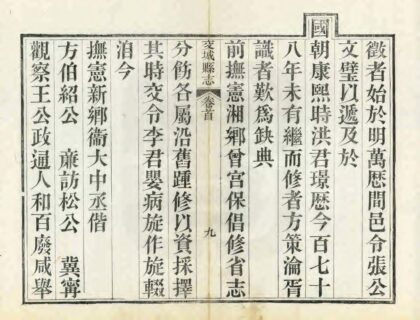 徵者始於明萬厯間邑令張公
文璧以遞及於
國
朝康熙時洪君璟厯今百七十
八年未有繼而修者方策淪胥
識者歎爲缺典
前撫憲湘鄉曾宮保倡修省志
交城縣志
卷首
九
分飭各屬沿舊踵修以資採擇
其時交令李君嬰病旋作旋輟
洎今
撫憲新鄉衞大中丞偕
方伯紹公
廉訪松公
冀寧
觀察王公政通人和百廢咸舉